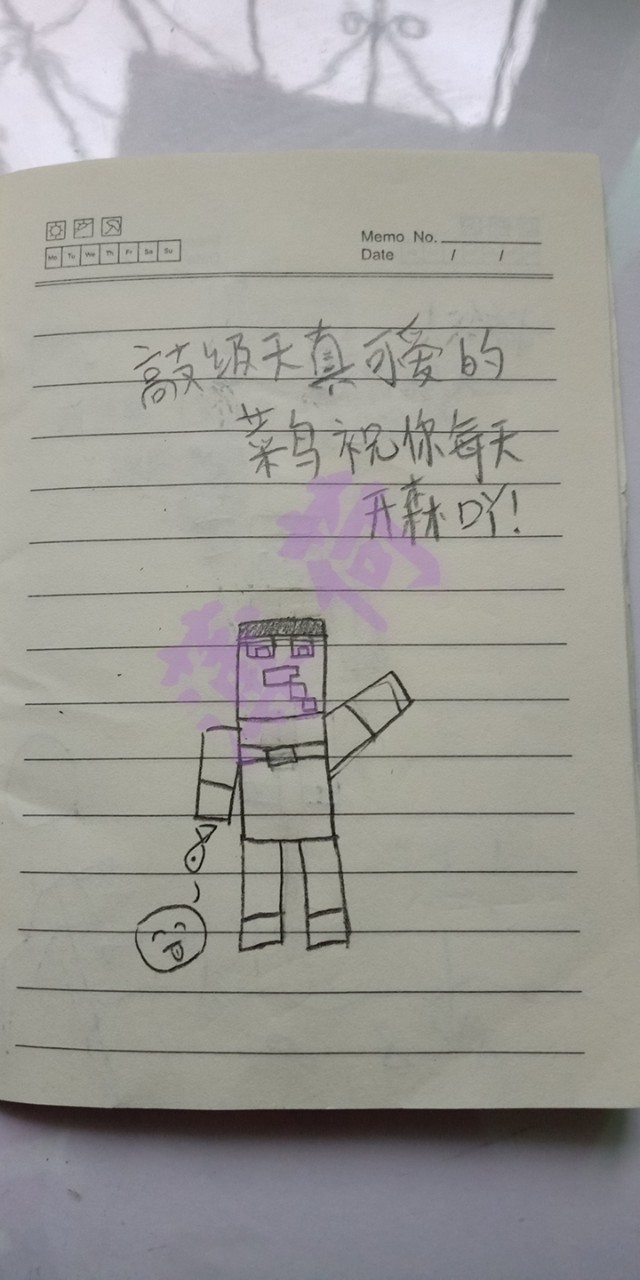 Mo Tu We Th Fr Sa Su
Memo No.
Date / /
敲级天真可爱的
菜鸟祝你每天
开森吖!